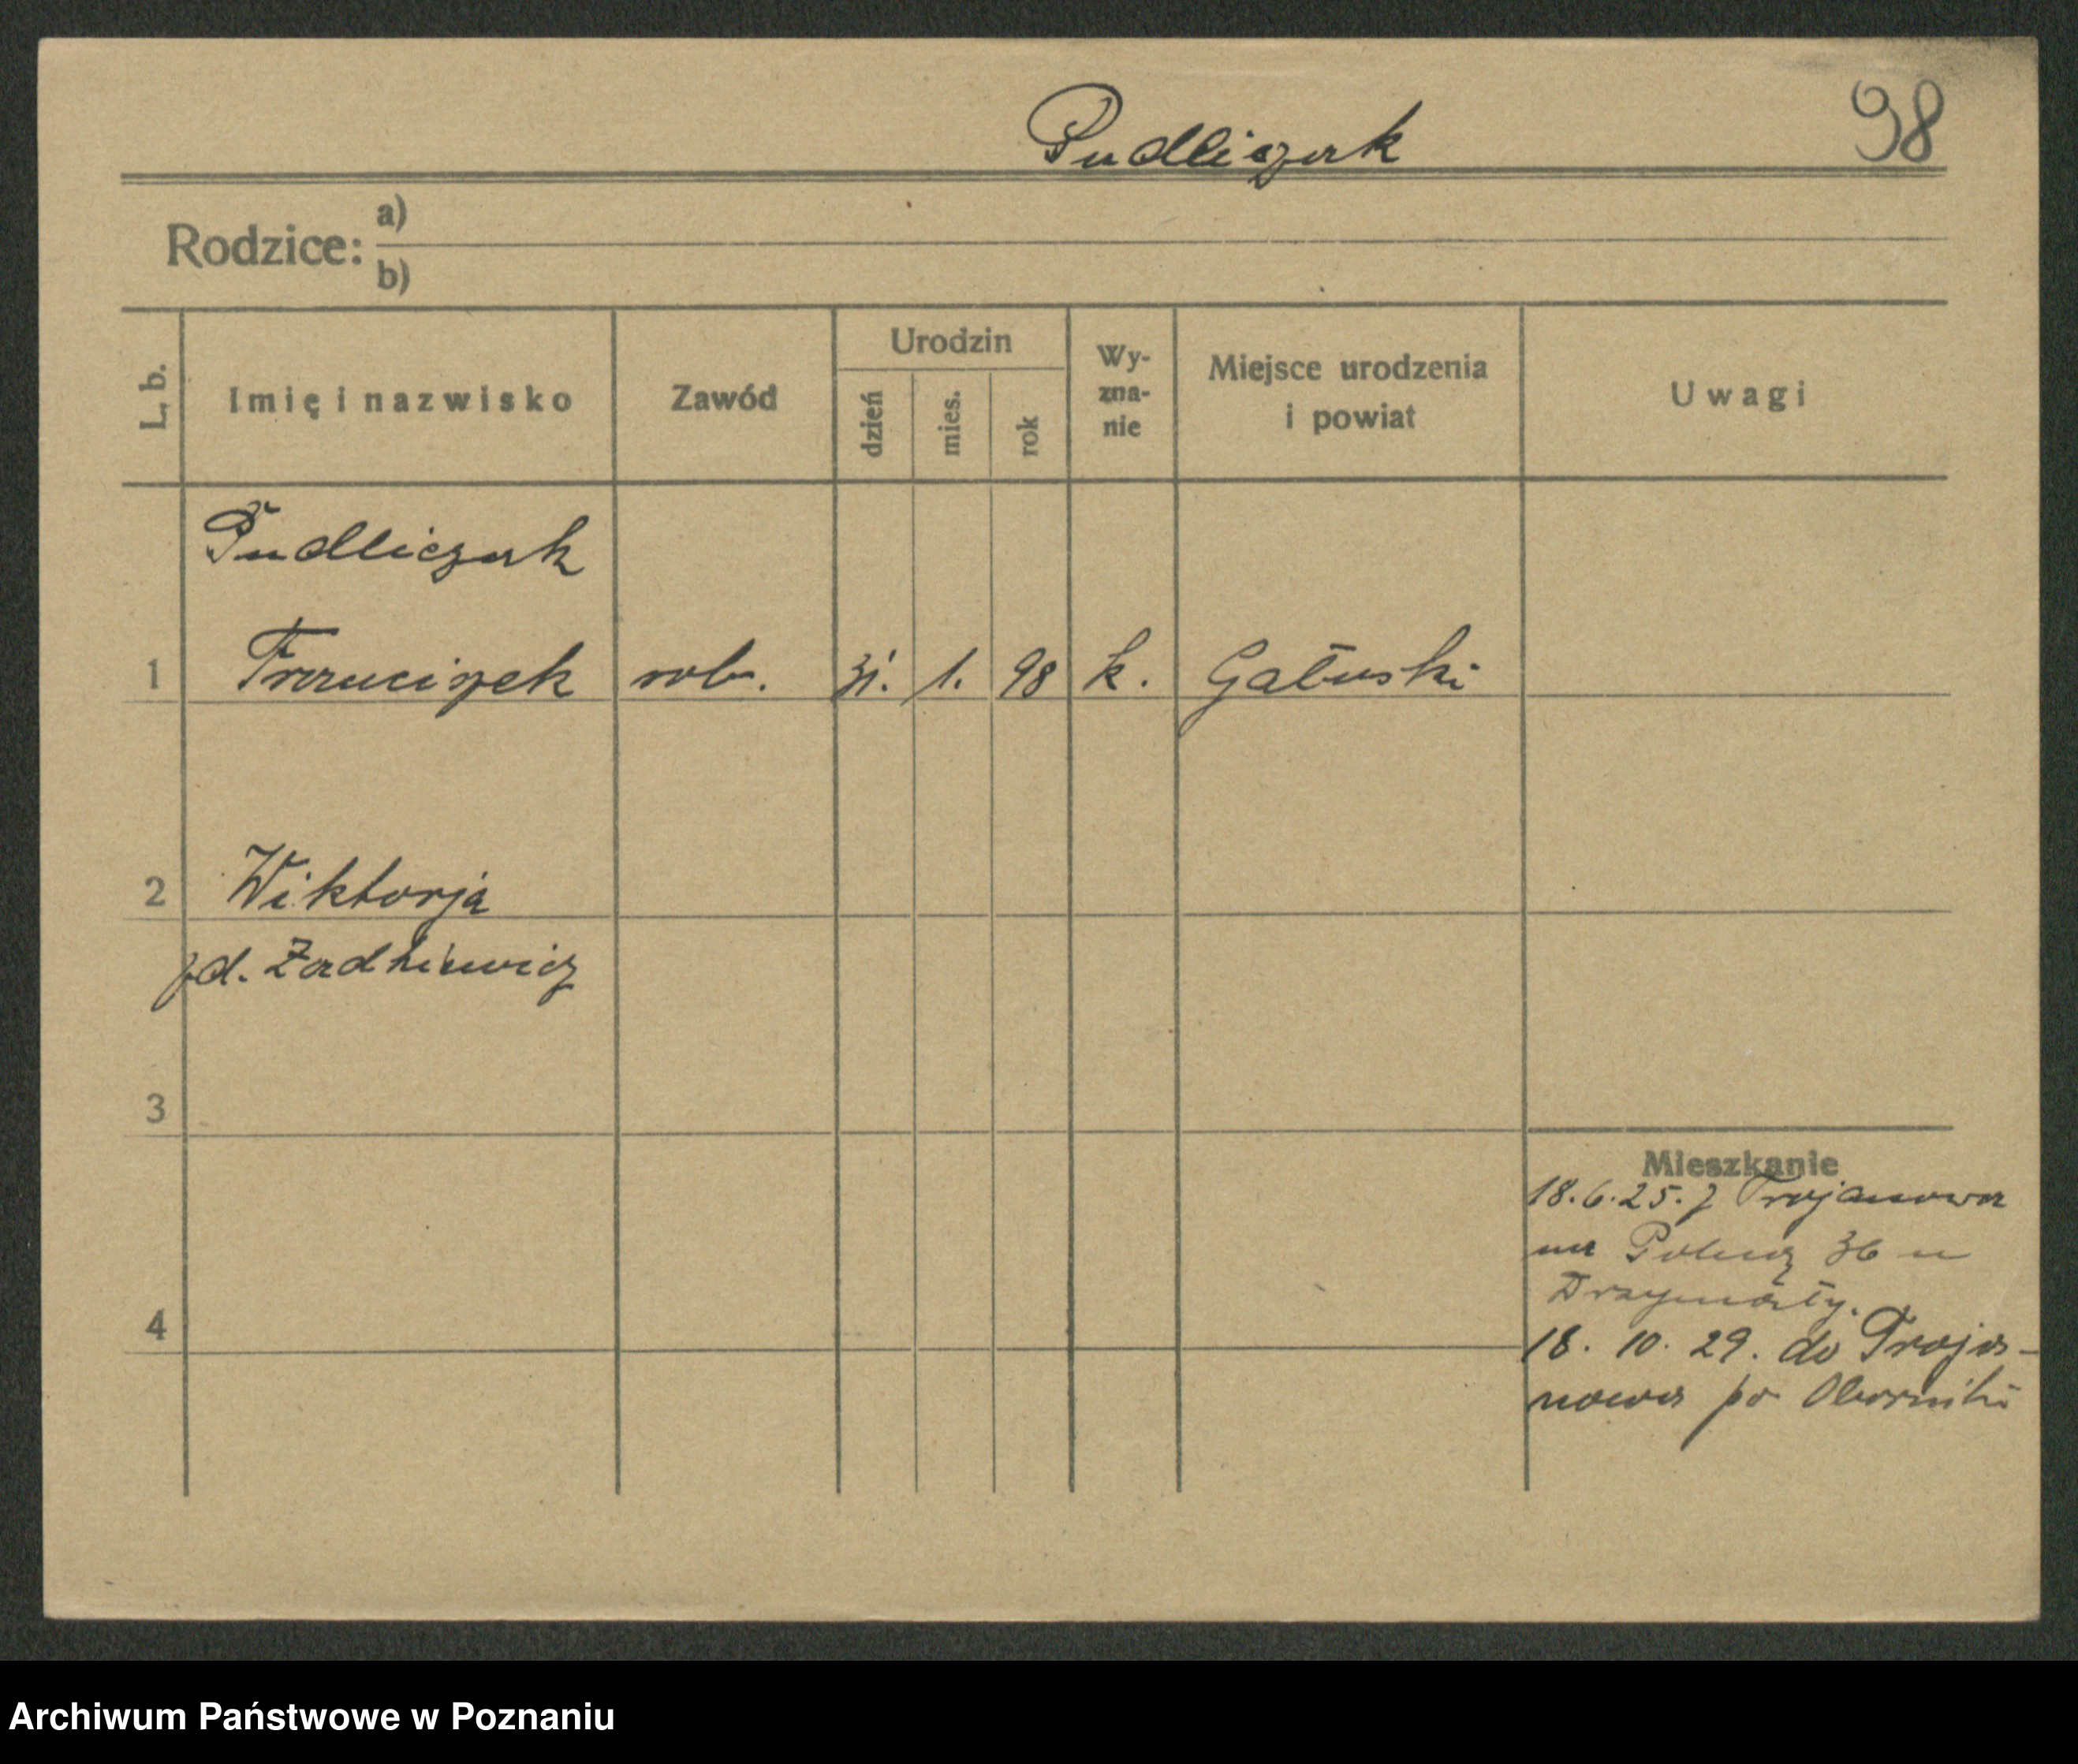 Pudliczak 98
Rodzice: a)
b)
L. b. Imię i nazwisko Zawód Urodzin dzień mies. rok Wy-zna-nie Miejsce urodzenia i powiat Uwagi
Pudliczak
1 Franciszek rob. 31. 1. 98 k. Gałuski
2 Wiktorja
zd. Żadkiewicz
3
Mieszkanie
18. 6. 25. z Trojanowa
na Polną 36 u
Drzymały.
4
18. 10. 29. do Troja-
nowa po Oborniki
Archiwum Państwowe w Poznaniu